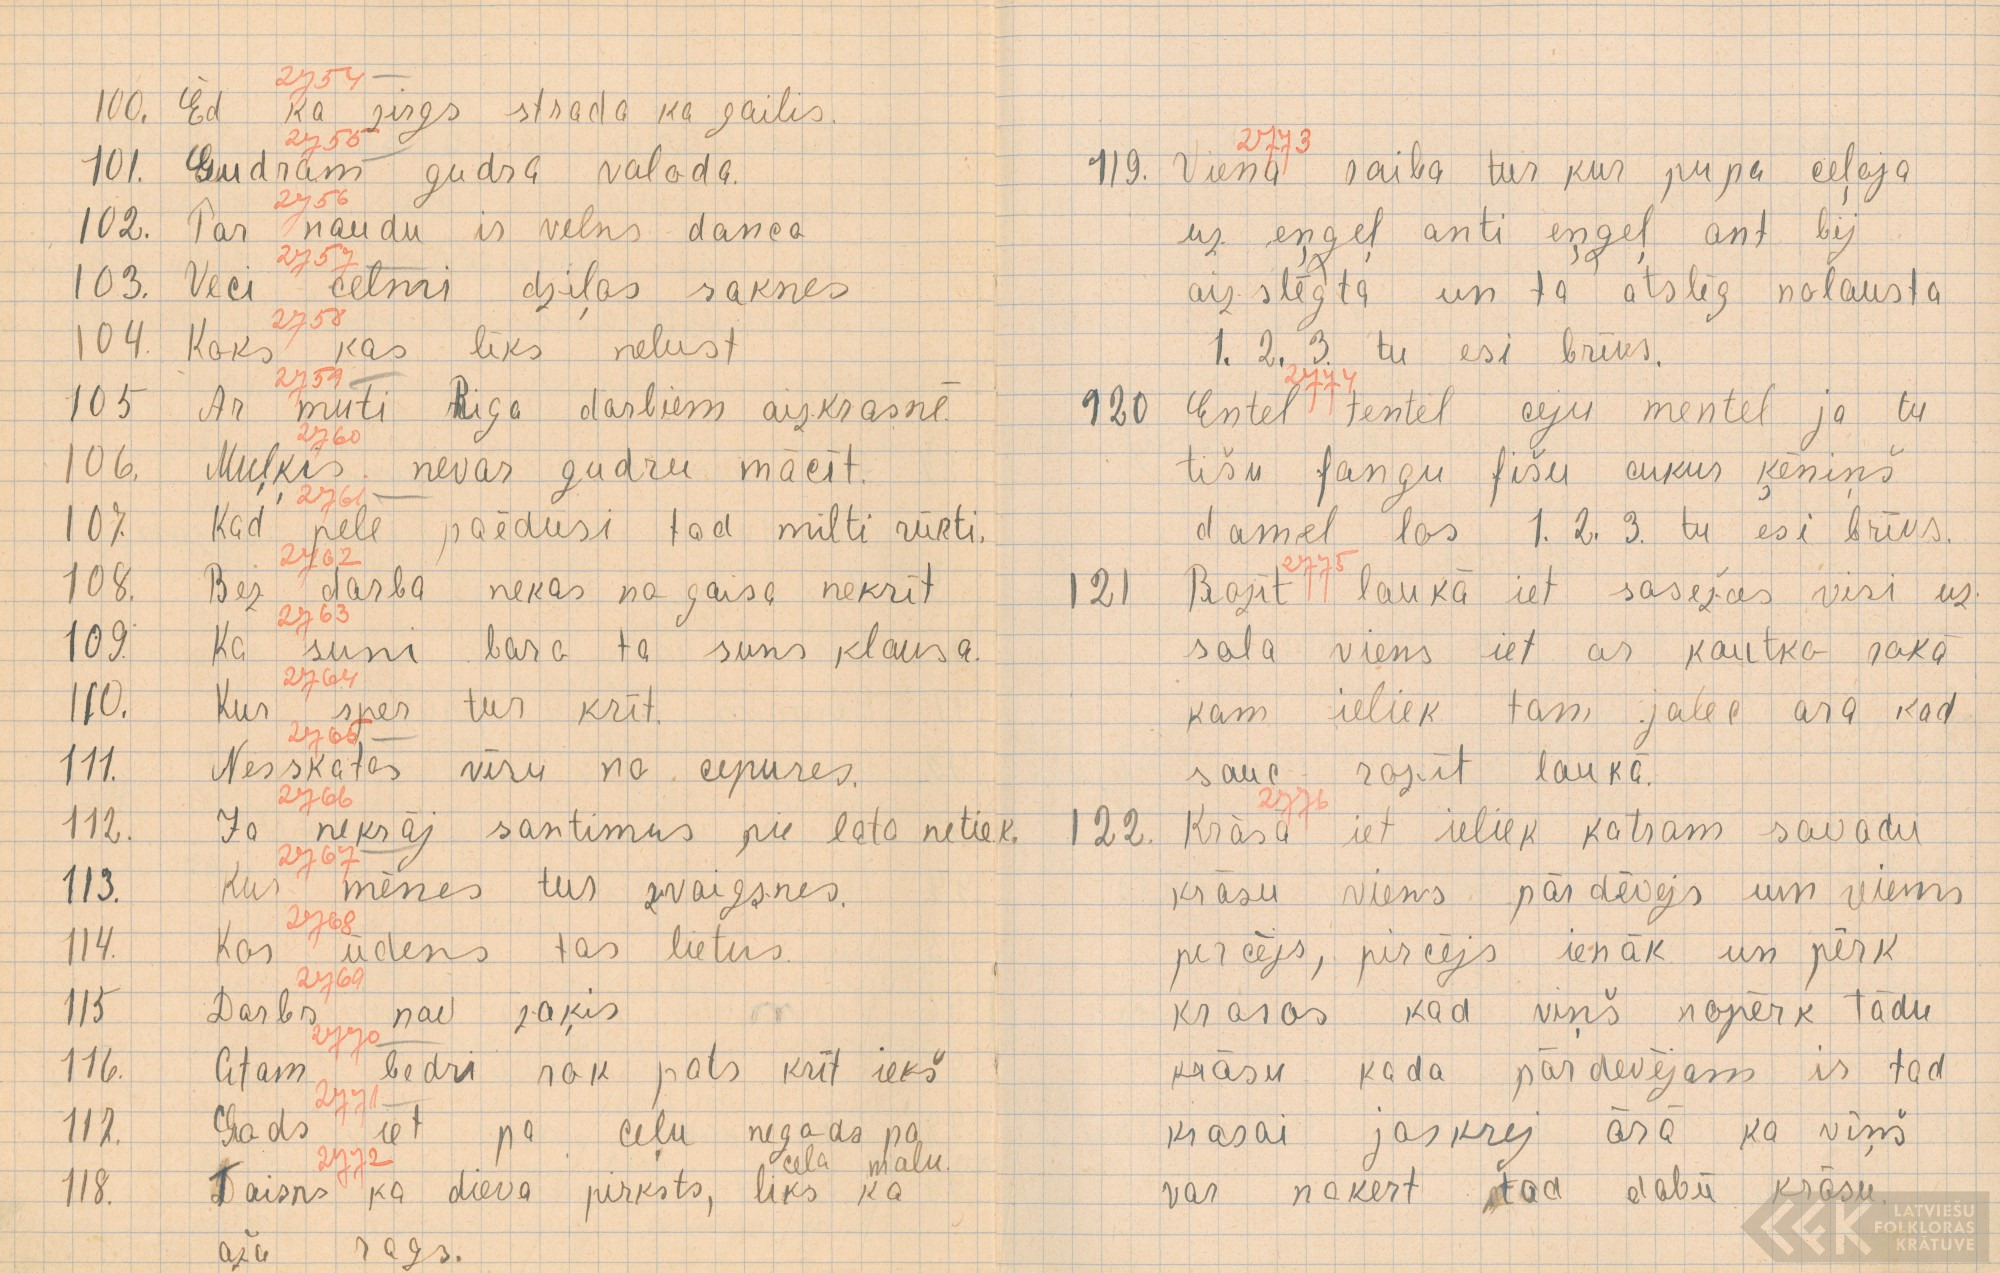 2754
100. Ēd ka zirgs strada ka gailis.
2755
101. Gudram gudra valoda.
2756
102. Par naudu ir velns danco
2757
103. Veci celmi dziļas saknes
2758
104. Koks kas līks nelust
2759
105 Ar muti Riga darbiem aizkrasnē.
2760
106. Muļķis nevar gudru mācīt.
2761
107. Kad pele paēdusi tad milti rūkti.
2762
108. Bez darba nekas no gaisa nekrīt
2763
109. Ka suni bara ta suns klausa.
2764
110. Kur sper tur krīt.
2765
111. Nesskatas vīru no cepures.
2766
112. Ja nekrāj santimus pie lata netiek.
2767
113. Kur mēnes tur zvaigznes.
2768
114. Kas ūdens tas lietus.
2769
115 Darbs nav zaķis
2770
116. Citam bedri rok pats krīt iekš
2771
117. Gads iet pa ceļu negads pa
cela malu.
2772
118. Taisns ka dieva pirksts, līks ka
aža rags.
2773
119. Viena raiba tur kur pupa ceļoja
uz eņģeļ anti eņģeļ ant bij
aizslēgta un ta atslēg nolausta
1. 2. 3. tu esi brīvs.
2774
120 Entel tentel ceju mentel ja tu
tišu fangu fišu cukur ķēniņš
damel los 1. 2. 3. tu esi brīvs.
2775
121 Rozīt laukā iet sasežas visi uz
sola viens iet ar kautko rokā
kam ieliek tam jalec ara kad
sauc rozīt laukā.
2776
122. Krāsa iet ieliek katram savadu
krāsu viens pārdēvējs un viens
percējs, pircējs ienāk un pērk
krasas kad viņš nopērk tādu
krāsu kada pārdevējam ir tad
krasai jaskrej ārā ka viņš
var nokert tad dabū krāsu.
LATVIEŠU
FOLKLORAS
KRĀTUVE